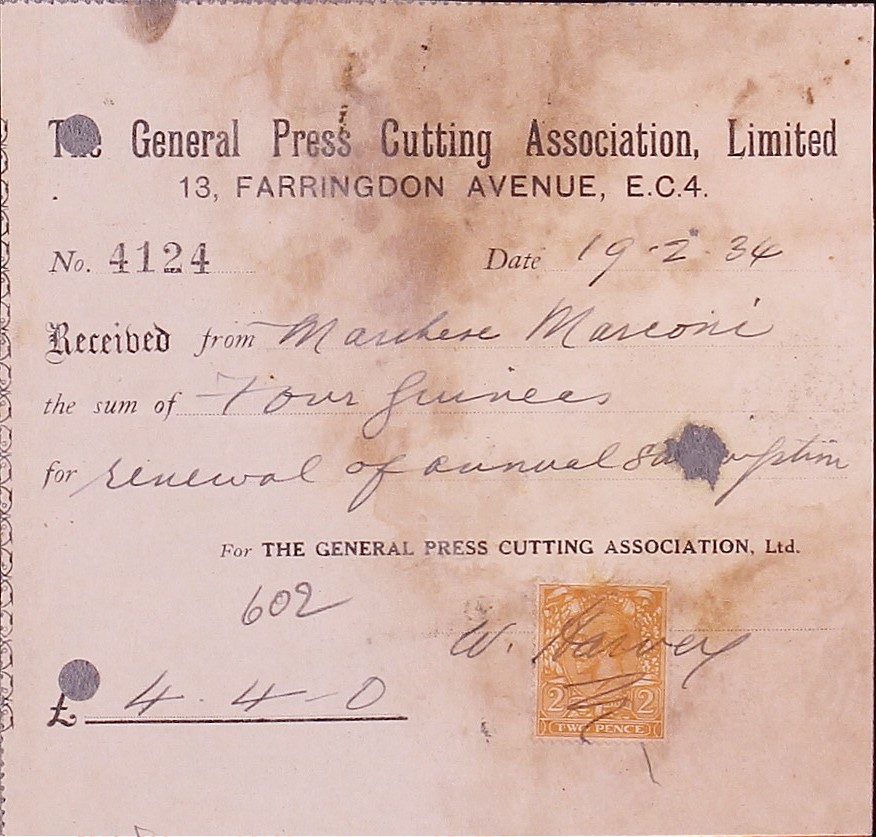 The General Press Cutting Association, Limited
13, FARRINGDON AVENUE, E.C.4.
No. 4124 Date 19-2-34
Received from Marchese Marconi
the sum of Four Guineas
for renewal of annual subscription
For THE GENERAL PRESS CUTTING ASSOCIATION, Ltd.
602
W. Harvey
£ 4-4-0
2 2
TWO PENCE